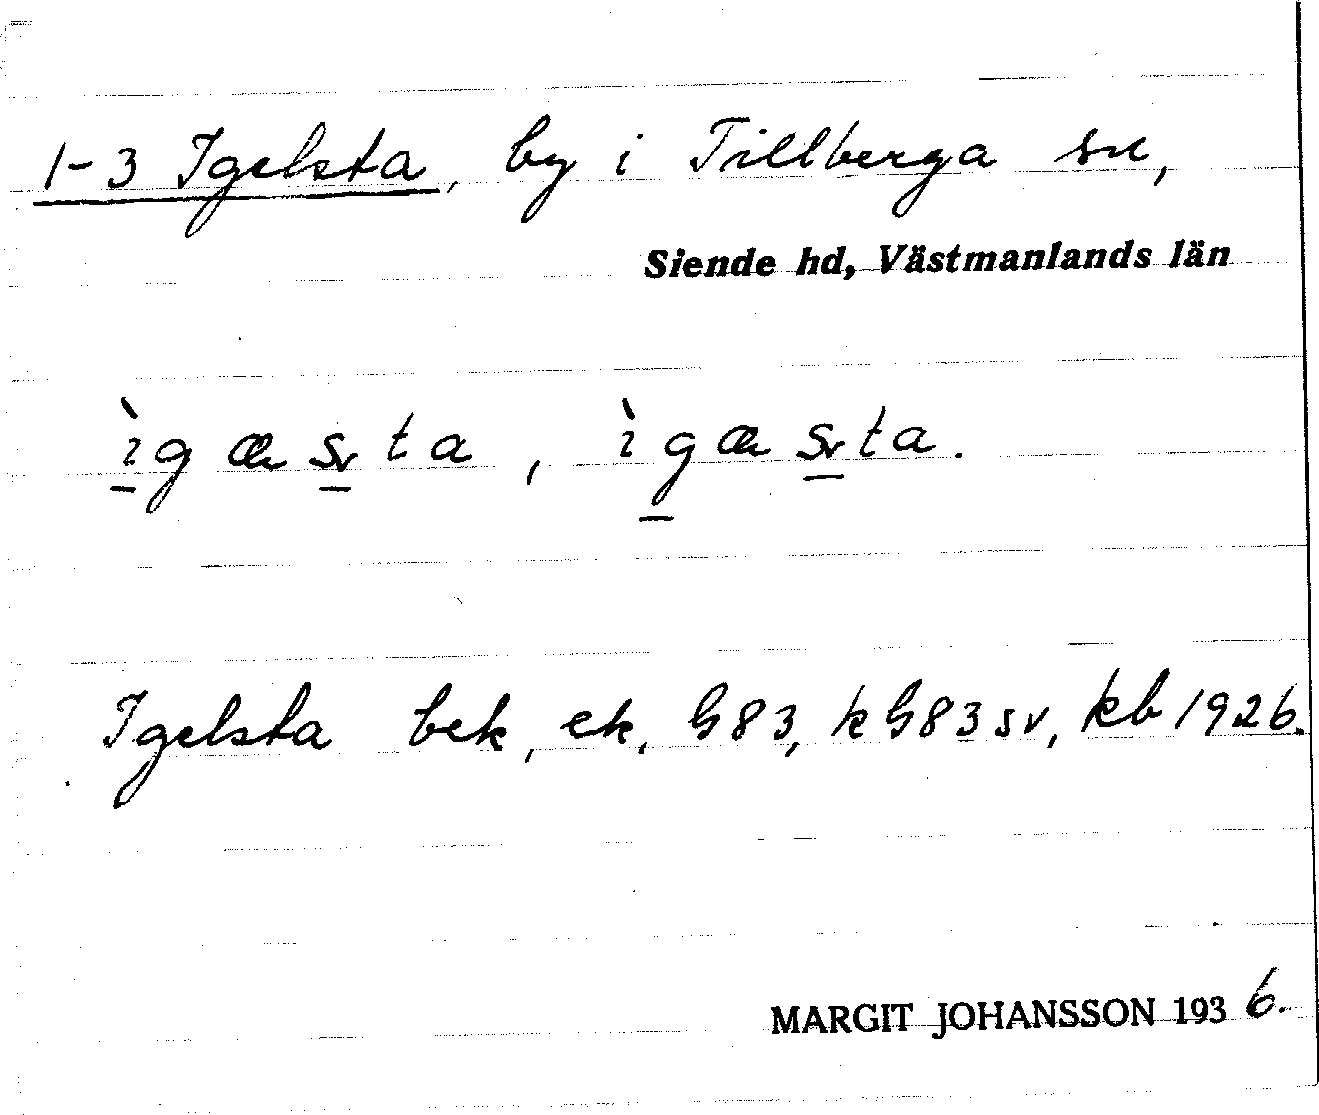 1-3 Igelsta, by i Tillberga sn,
Siende hd, Västmanlands län
ìgæsṛta, ìgæsṛta.
Igelsta bek, ek, G83, kG83sv, kb 1926.
MARGIT JOHANSSON 1936.